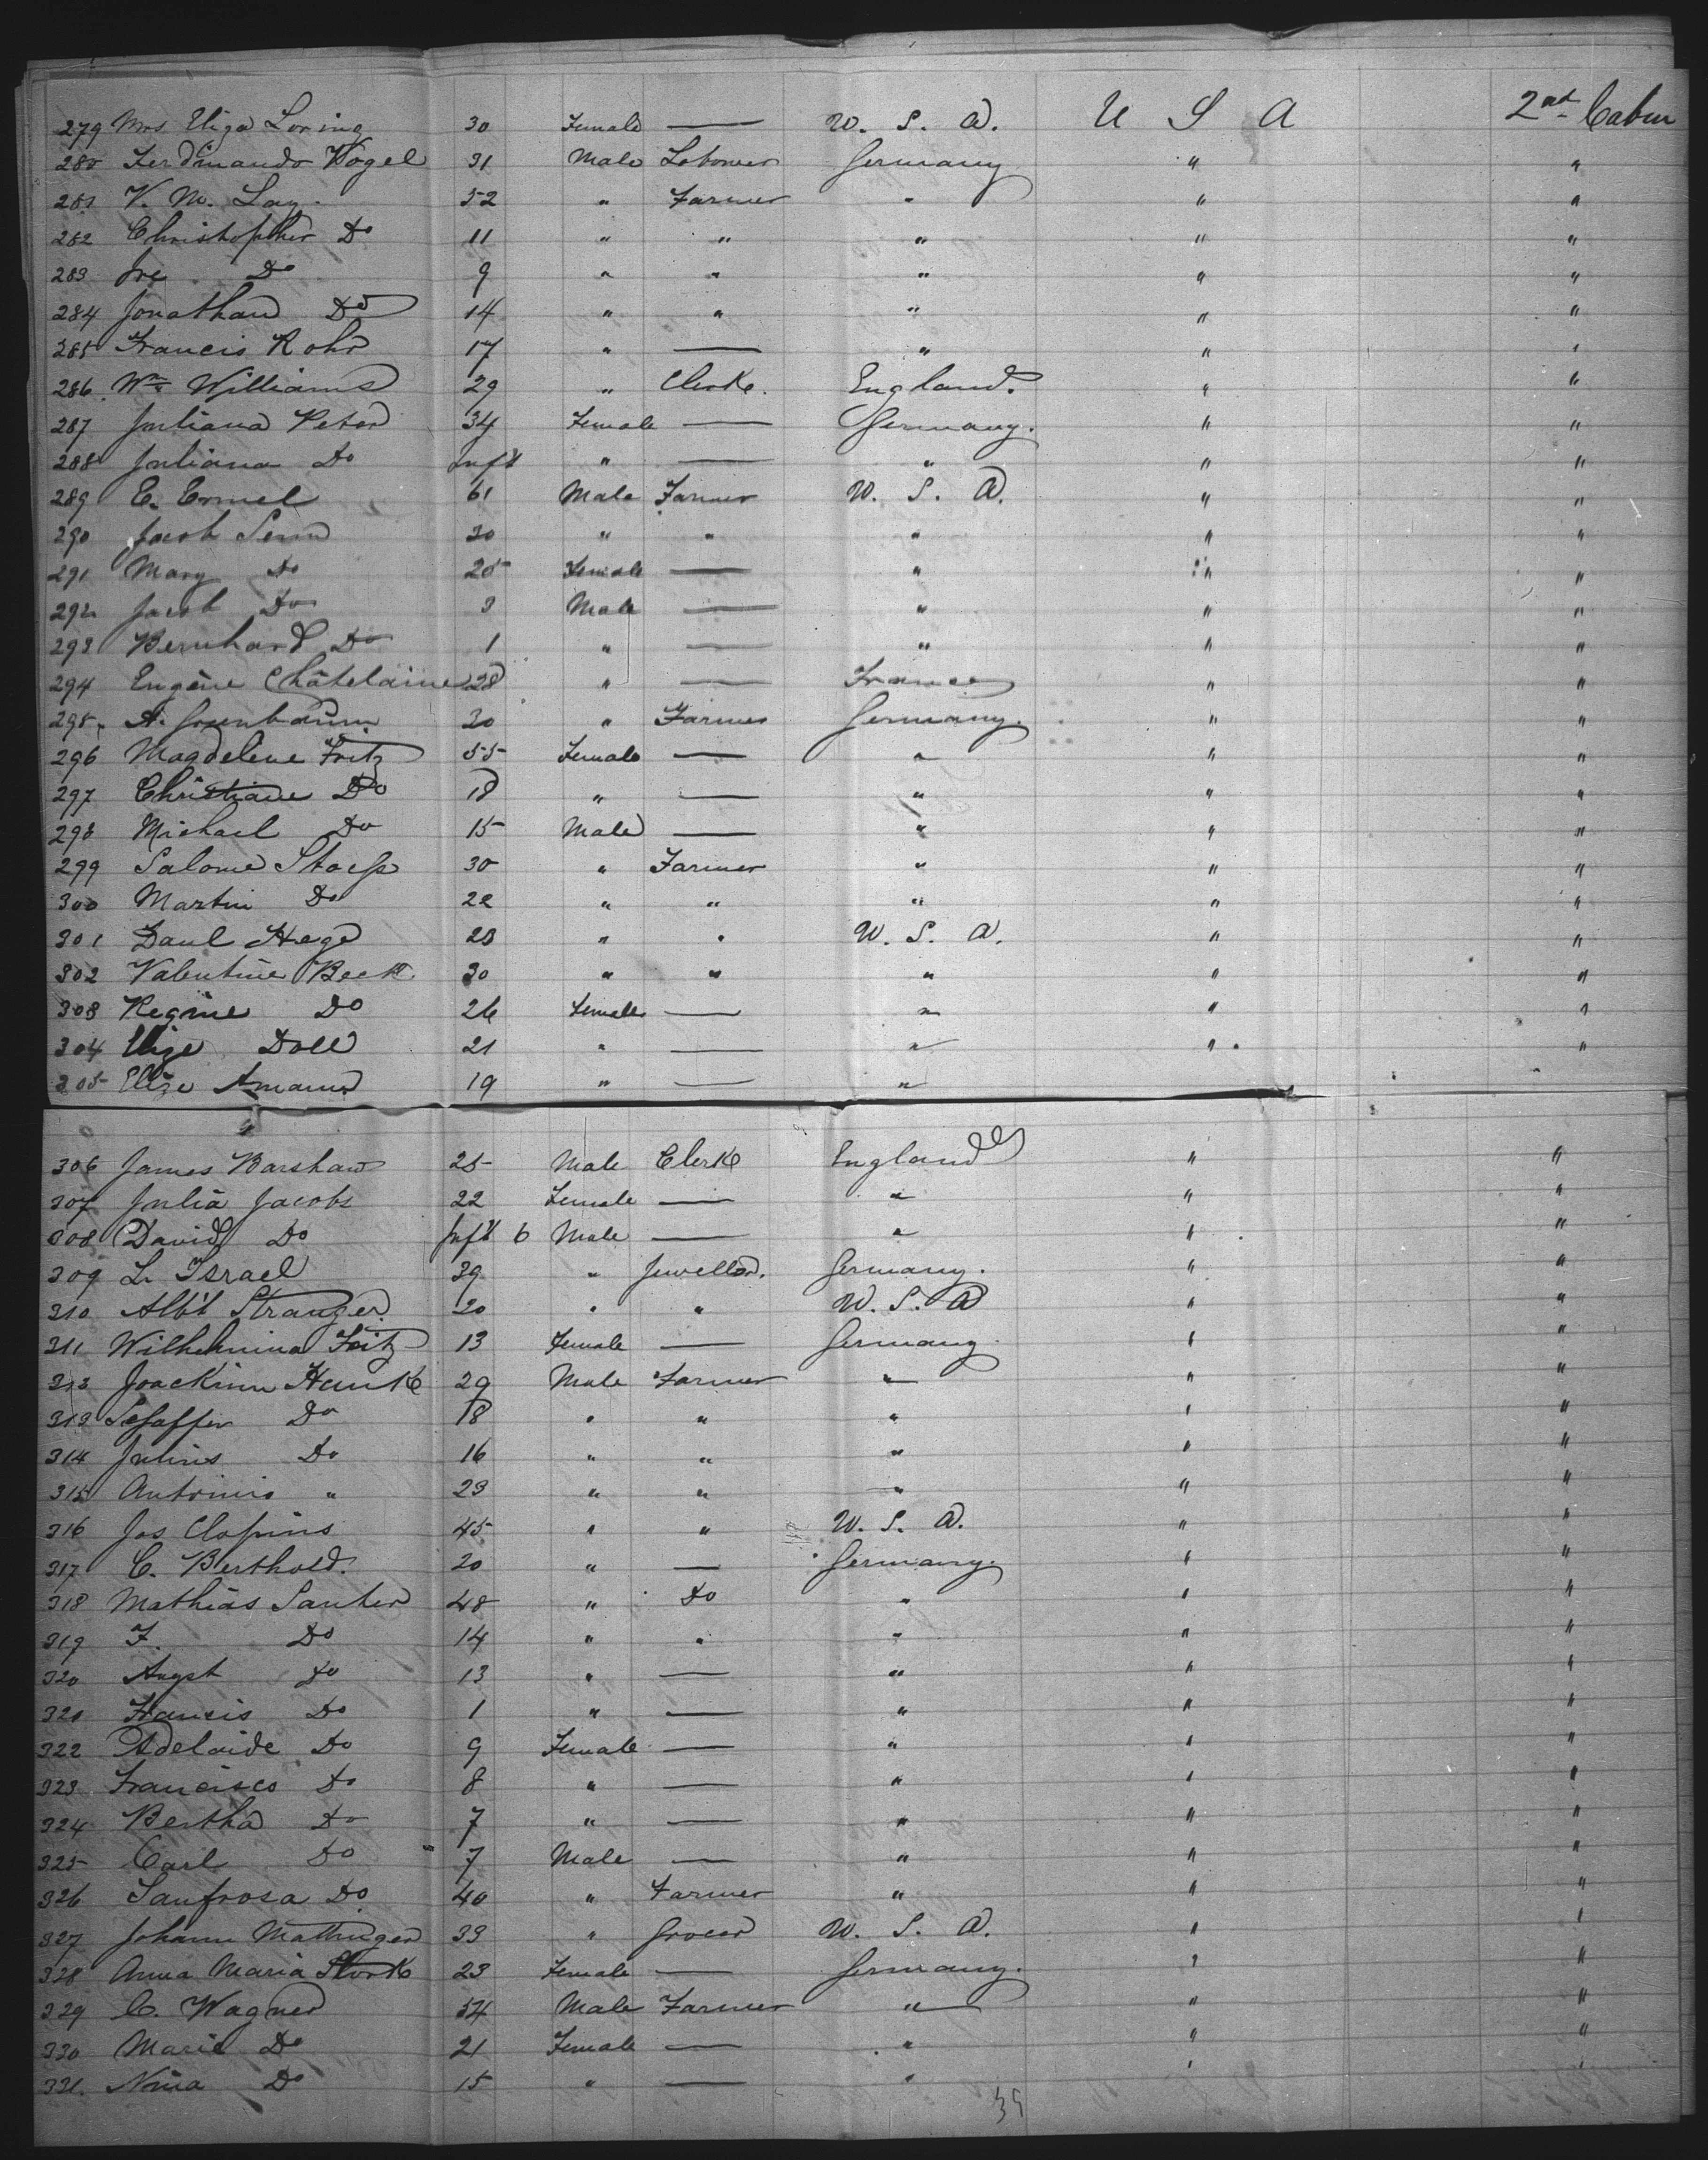 279 Mrs Eliza Loring 30 Female — U. S. A. U S A 2nd Cabin
280 Ferdinando Vogel 31 Male Laborer Germany " "
281 V. M. Lay. 52 " Farmer " " "
282 Christopher Do 11 " " " " "
283 Do 9 " " " " "
284 Jonathan Do 14 " " " " "
285 Francis Rohr 17 " — " " "
286 Wm Williams 29 " Clerk. England. " "
287 Juliana Peter 34 Female — Germany. " "
288 Juliana Do Inft " — " " "
289 E. Ermel 61 Male Farmer U. S. A. " "
290 Jacob Senn 30 " " " " "
291 Mary Do 25 Female — " " "
292 Jacob Do 3 Male — " " "
293 Bernhard Do 1 " — " " "
294 Eugène Châtelaine 28 " — France " "
295 A. 30 " Farmer Germany. " "
296 Magdelene Fritz 55 Female — " " "
297 Christiane Do 18 " — " " "
298 Michael Do 15 Male — " " "
299 Salome 30 " Farmer " " "
300 Martin Do 22 " " " " "
301 Paul Hege 23 " " U. S. A. " "
302 Valentine Beck 30 " " " " "
303 Regine Do 26 Female — " " "
304 Doll 21 " — " " "
305 Elize Amann 19 " — "
306 James Barshaw 25 Male Clerk England " "
307 Julia Jacobs 22 Female — " " "
308 David Do Inft 6 Male — " " "
309 L. Israel 39 " Jeweller. Germany. " "
310 Albt Stranger 20 " " U. S. A " "
311 Wilhelmina Fritz 13 Female — Germany " "
312 Joackim Hunke 29 Male Farmer " " "
313 Do 18 " " " " "
314 Julius Do 16 " " " " "
315 Antonio " 23 " " " " "
316 Jos 45 " " U. S. A. " "
317 C. Berthold. 20 " — Germany. " "
318 Mathias Sauter 48 " Do " " "
319 F. Do 14 " " " " "
320 Augst Do 13 " — " " "
321 Francis Do 1 " — " " "
322 Adelaide Do 9 Female — " " "
323 Francisco Do 8 " — " " "
324 Bertha Do 7 " — " " "
325 Carl Do 7 Male — " " "
326 Sanfrosa Do 40 " Farmer " " "
327 Johann 33 " Grocer U. S. A. " "
328 Anna Maria Stork 23 Female — Germany. " "
329 C. Wagner 54 Male Farmer " " "
330 Marie Do 21 Female — " " "
331. Nina Do 15 " — " "
39